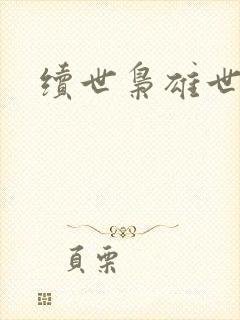 續世梟雄世
頁栗